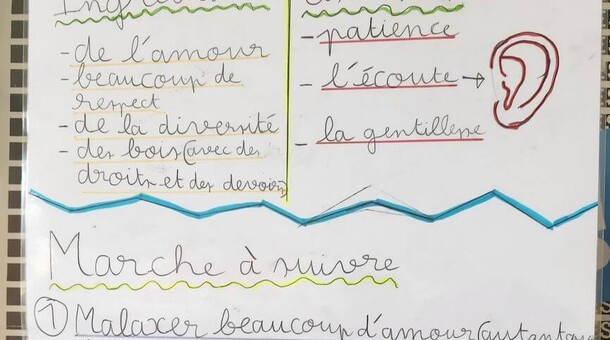 - de l'amour
- beaucoup de
respect
- de la diversité
- des bois (avec des
droits et des devoirs
- patience
- l'écoute →
- la gentillesse
Marche à suivre
① Malaxer beaucoup d'amour (autant que